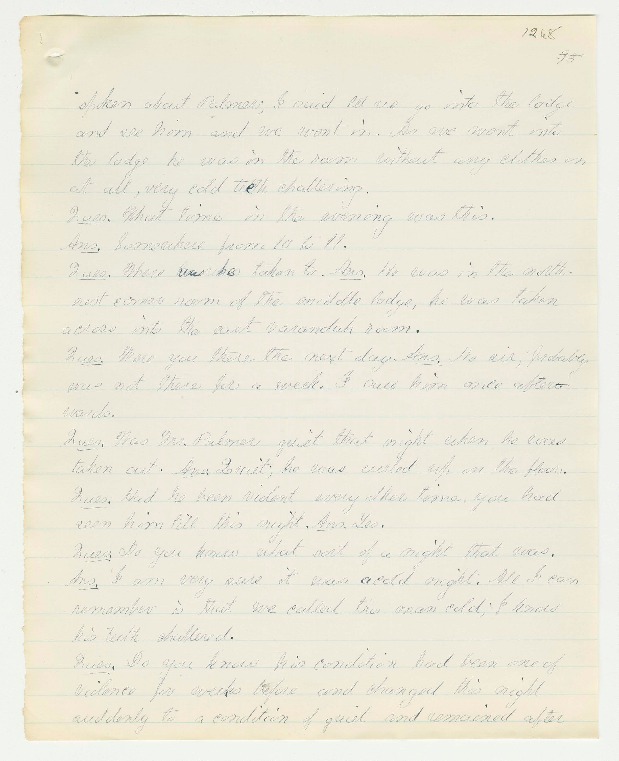 1268
75
spoken about Palmer, I said let us go into the lodge
and see him and we went in. As we went into
the lodge he was in the room without any clothes on
at all, very cold teeth chattering.
Ques. What time in the evening was this.
Ans. Somewhere from 10 to 11.
Ques. Where was he taken to. Ans. He was in the north
west corner room of the middle lodge, he was taken
across into the west varandah room.
Ques. Were you there the next day. Ans. No sir, probably
was not there for a week. I saw him once after-
wards.
Ques. Was Mr. Palmer quiet that night when he was
taken out. Ans. Quiet, he was curled up in the floor.
Ques. Had he been violent every other time, you had
seen him till this night. Ans. Yes.
Ques. Do you know what sort of a night that was.
Ans. I am very sure it was a cold night. All I can
remember is that we called the man cold, I know
his teeth chattered.
Ques. Do you know his condition had been one of
violence for weeks before and changed this night
suddenly to a condition of quiet and remained after